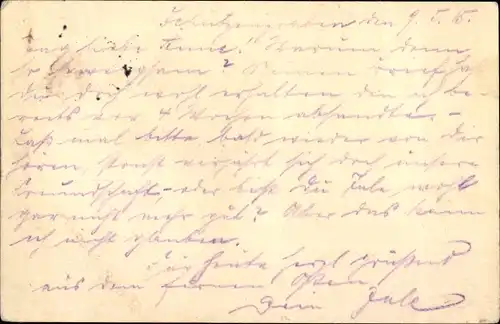 Schützengraben den 9.5.15.
"Liebe Anne!" Warum denn
so schweigsam? Meinen Brief
doch wohl erhalten den ich be-
reits vor 4 Wochen absandte. -
Laß mal bitte bald wieder von Dir
hören, sonst verjährt sich doch unsere
Freundschaft, - oder bist Du Jule wohl
gar nicht mehr gut? Aber das kann
ich nicht glauben.
Für heute herzl. Grüße
aus dem fernen Osten
Dein Jule